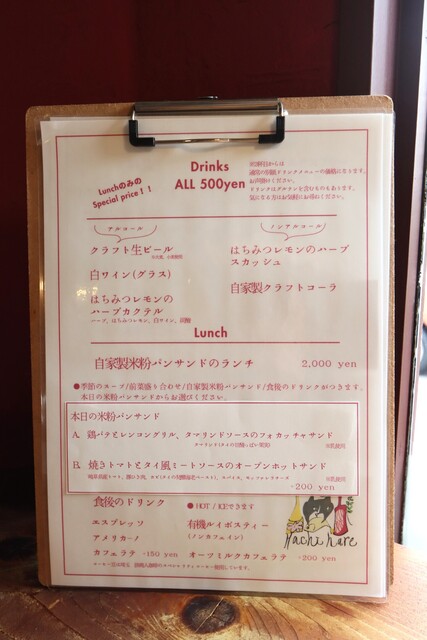 Drinks
ALL 500yen
Lunchのみの
Special price!!
お気軽にお尋ねください。
アルコール
クラフト生ビール
白ワイン(グラス)
はちみつレモンの
ハーブカクテル
ノンアルコール
はちみつレモンのハーブ
スカッシュ
自家製クラフトコーラ
Lunch
自家製米粉パンサンドのランチ 2,000 yen
●季節のスープ/前菜盛り合わせ/自家製米粉パンサンド/食後のドリンクがつきます。
本日の米粉パンサンドからお選びください。
本日の米粉パンサンド
A. 鶏バラとレンコングリル、タマリンドソースのフォカッチャサンド
B. 焼きトマトとタイ風ミートソースのオープンホットサンド
-200 yen
食後のドリンク ●HOT / ICEできます
エスプレッソ
アメリカーノ
カフェラテ -150 yen
有機ルイボスティー
(ノンカフェイン)
オーツミルクカフェラテ -200 yen
Hachi hare